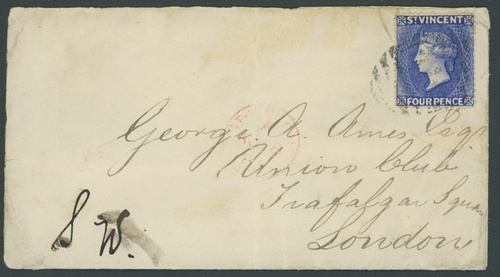 ST VINCENT
FOUR PENCE
George A. Ames Esq
Union Club
Trafalgar Square
London
S W.